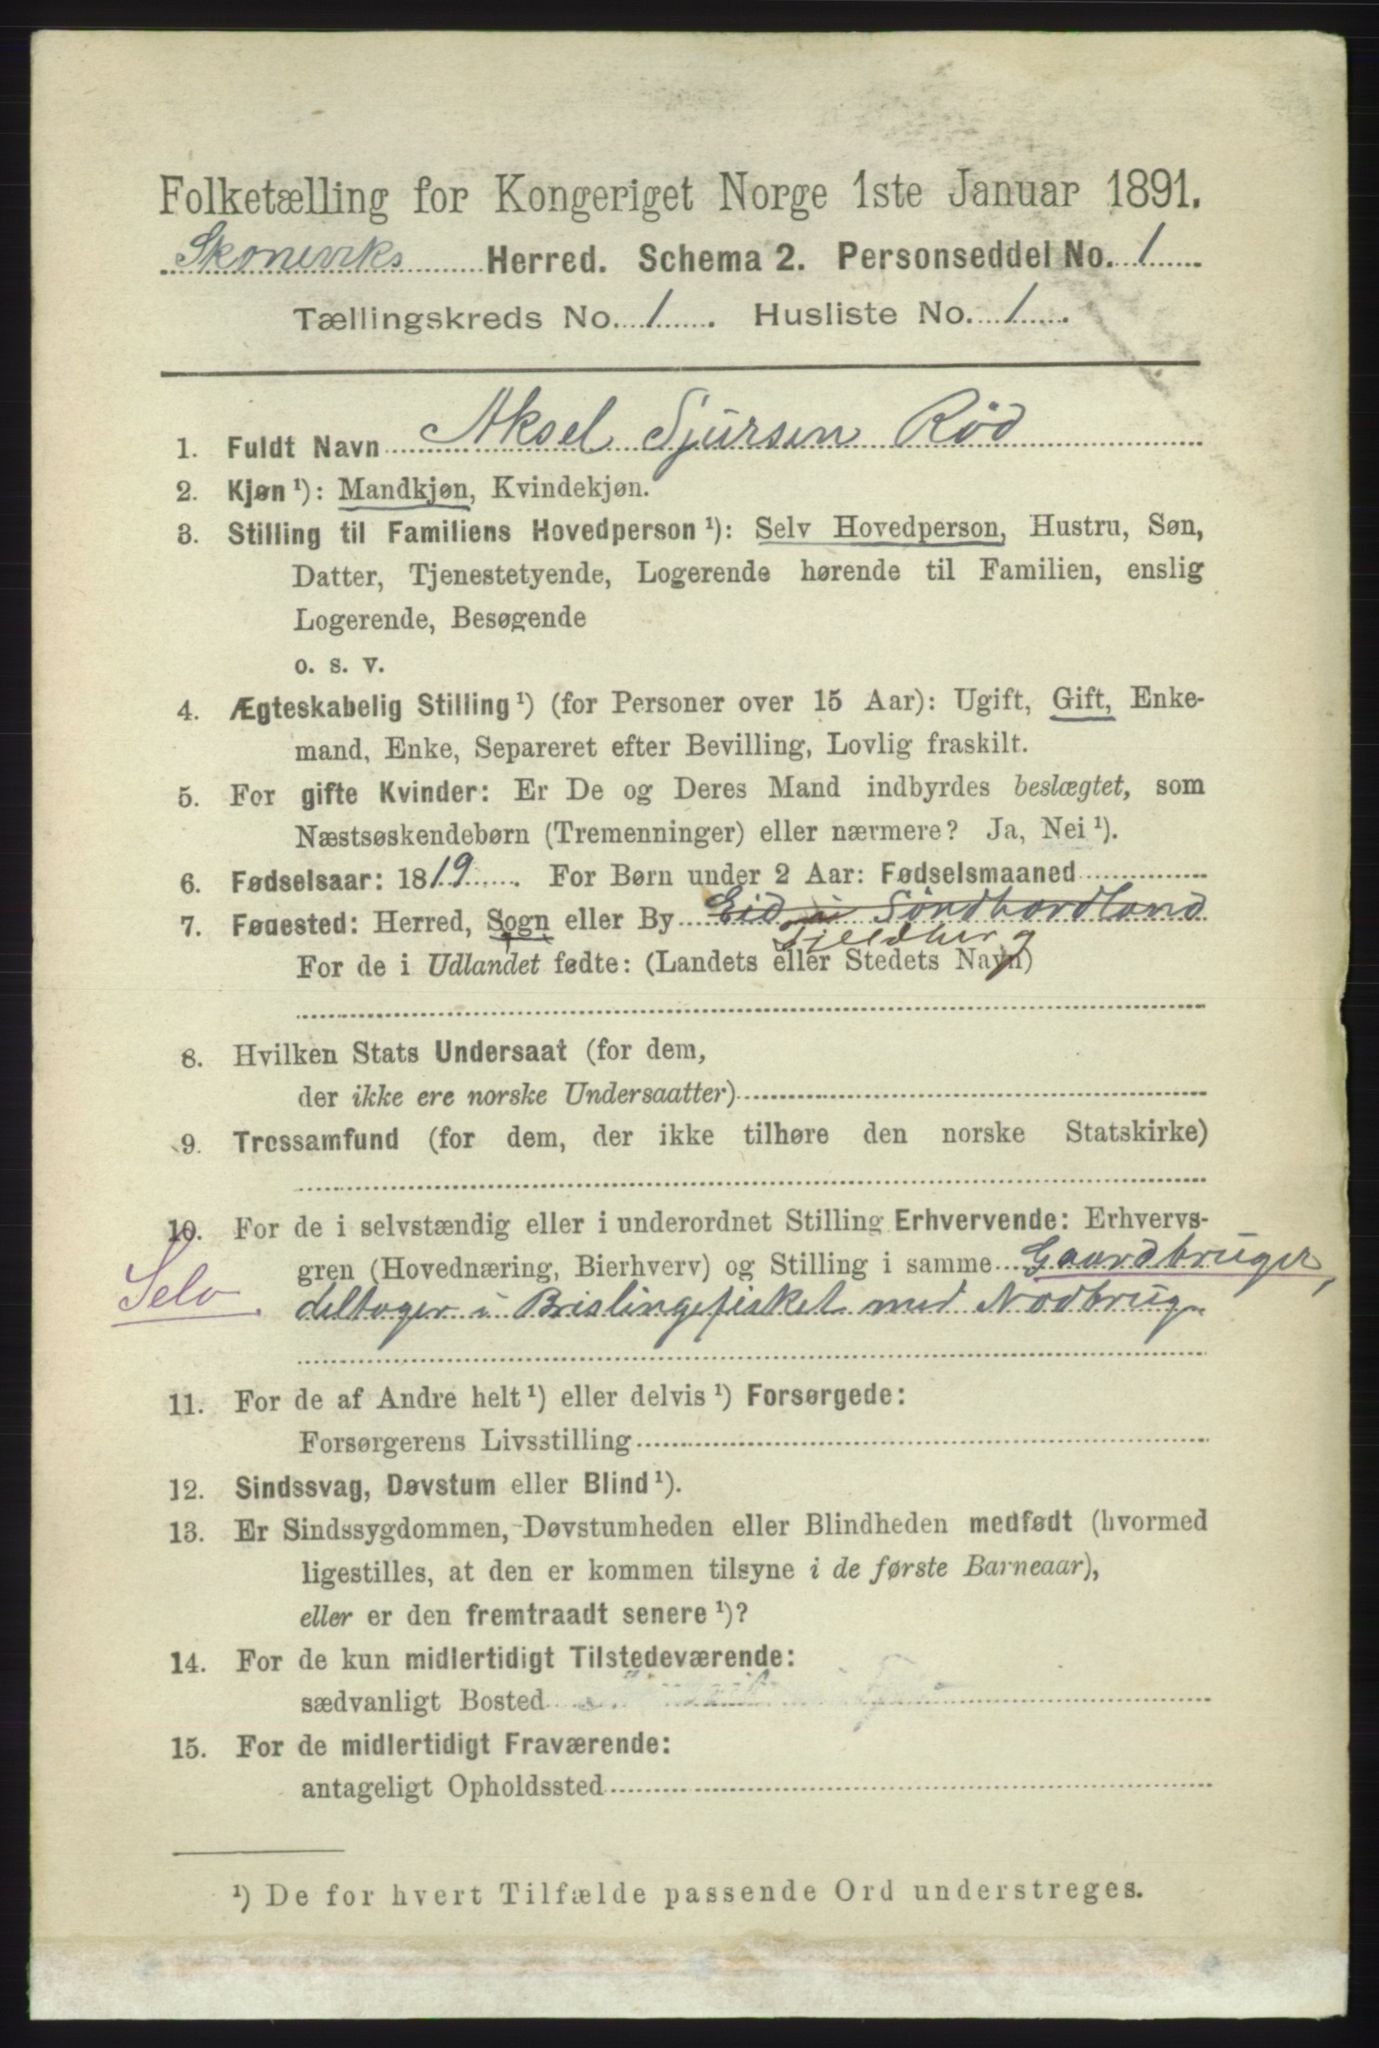 Folketælling for Kongeriget Norge 1ste Januar 1891.
Skoneviks Herred. Schema 2. Personseddel No. 1
Tællingskreds No. 1. Husliste No. 1.
1. Fuldt Navn Aksel Sjursen Rød
2. Kjøn¹): Mandkjøn, Kvindekjøn.
3. Stilling til Familiens Hovedperson¹): Selv Hovedperson, Hustru, Søn,
Datter, Tjenestetyende, Logerende hørende til Familien, enslig
Logerende, Besøgende
o. s. v.
4. Ægteskabelig Stilling¹) (for Personer over 15 Aar): Ugift, Gift, Enke-
mand, Enke, Separeret efter Bevilling, Lovlig fraskilt.
5. For gifte Kvinder: Er De og Deres Mand indbyrdes beslægtet, som
Næstsøskendebørn (Tremenninger) eller nærmere? Ja, Nei¹).
6. Fødselsaar: 1819. For Børn under 2 Aar: Fødselsmaaned
7. Fødested: Herred, Sogn eller By Eid i Söndhordland
Fjeldberg
For de i Udlandet fødte: (Landets eller Stedets Navn)
8. Hvilken Stats Undersaat (for dem,
der ikke ere norske Undersaatter)
9. Trossamfund (for dem, der ikke tilhøre den norske Statskirke)
10. For de i selvstændig eller i underordnet Stilling Erhvervende: Erhvervs-
gren (Hovednæring, Bierhverv) og Stilling i samme Gaardbruger,
Selv deltager i Brislingefisket med Nodbrug
11. For de af Andre helt¹) eller delvis¹) Forsørgede:
Forsørgerens Livsstilling
12. Sindssvag, Døvstum eller Blind¹).
13. Er Sindssygdommen, Døvstumheden eller Blindheden medfødt (hvormed
ligestilles, at den er kommen tilsyne i de første Barneaar),
eller er den fremtraadt senere¹)?
14. For de kun midlertidigt Tilstedeværende:
sædvanligt Bosted
15. For de midlertidigt Fraværende:
antageligt Opholdssted
¹) De for hvert Tilfælde passende Ord understreges.